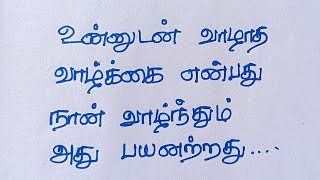 உன்னுடன் வாழாத
வாழ்க்கை என்பது
நான் வாழ்ந்தும்
அது பயனற்றது....